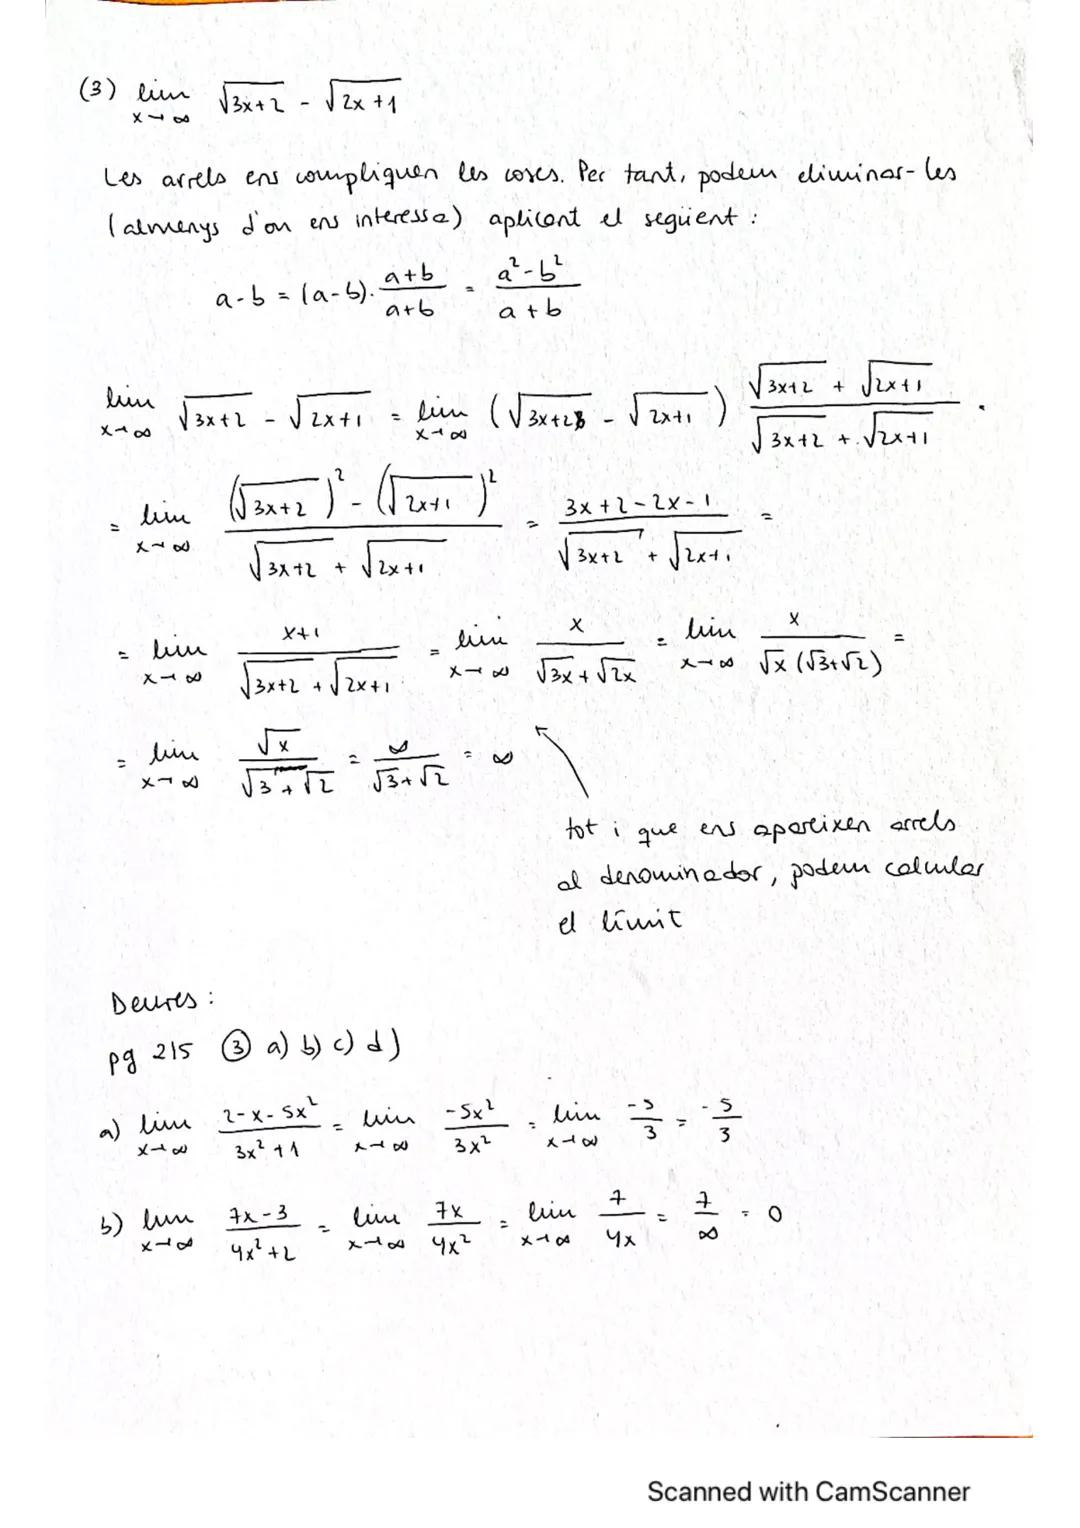 (3) lim x→∞ √(3x+2) - √(2x+1)
Les arrels ens compliquen les coses. Per tant, podem eliminar-les
(almenys d'on ens interessa) aplicant el següent :
a-b = (a-b)· (a+b)/(a+b) = (a²-b²)/(a+b)
lim x→∞ √(3x+2) - √(2x+1) = lim x→∞ (√(3x+2) - √(2x+1)) (√(3x+2) + √(2x+1))/(√(3x+2) + √(2x+1)) ·
= lim x→∞ ((√(3x+2))² - (√(2x+1))²)/(√(3x+2) + √(2x+1)) = (3x+2-2x-1)/(√(3x+2) + √(2x+1)) =
= lim x→∞ (x+1)/(√(3x+2) + √(2x+1)) = lim x→∞ x/(√3x + √2x) = lim x→∞ x/(√x (√3+√2)) =
= lim x→∞ √x/(√3+√2) = ∞/(√3+√2) = ∞
tot i que ens apareixen arrels
al denominador, podem calcular
el límit
Deures :
pg 215 ③ a) b) c) d)
a) lim x→∞ (2-x-5x²)/(3x²+1) = lim x→∞ -5x²/3x² = lim x→∞ -5/3 = -5/3
b) lim x→∞ (7x-3)/(4x²+2) = lim x→∞ 7x/4x² = lim x→∞ 7/4x = 7/∞ = 0
Scanned with CamScanner